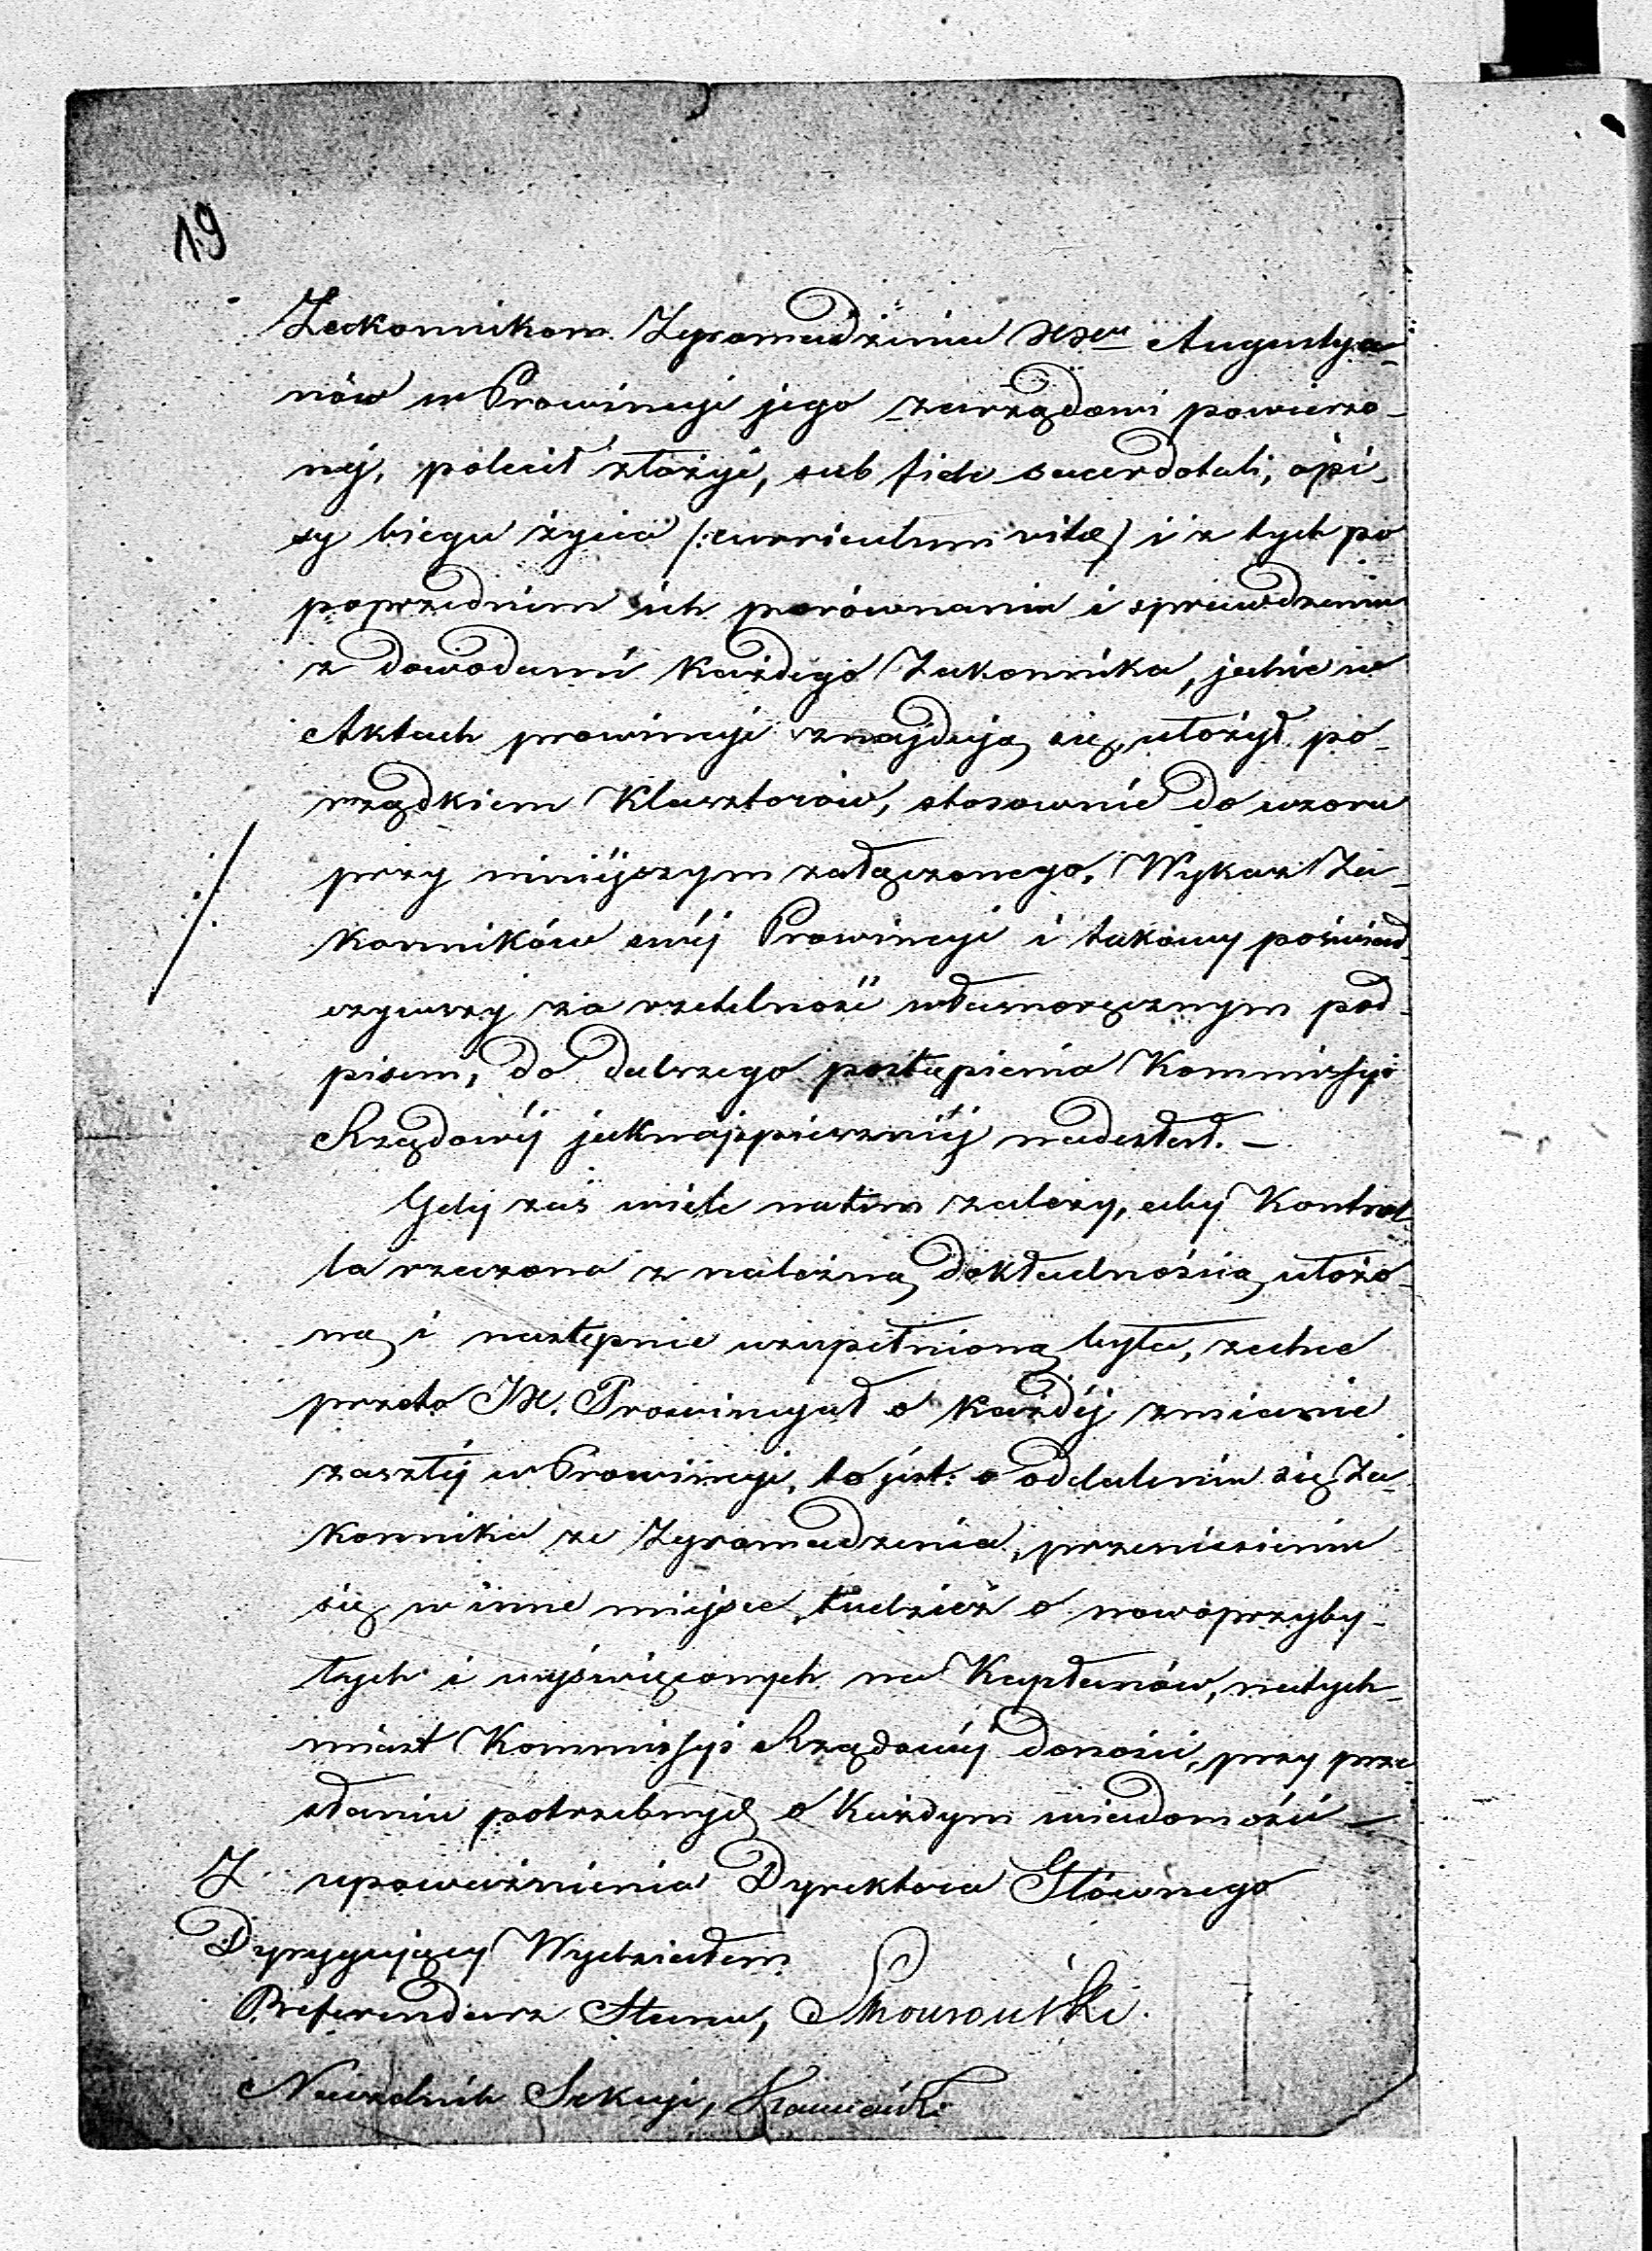 19
Zakonnikom Zgromadzenia XXów Augustya-
nów w Prowincyi jego zarządowi powierzo-
néj, polecił złożyć, sub fide sacerdotali, opi-
sy biegu życia /:curriculum vitæ/ i z tych po
poprzedniem ich porównaniu i sprawdzeniu
z dowodami każdego Zakonnika, jakie w
Aktach prowincyi znajdują się, ułożył po-
rządkiem Klasztorów, stosownie do wzoru
przy niniéjszym załączonego, Wykaz Za-
konników swéj Prowincyi i takowy poświad-
czywszy za rzetelność własnoręcznym pod-
pisem, do dalszego postąpienia Kommissyi
Rządowéj jaknajspieszniéj nadesłał. —
Gdy zaś wiele natem zależy, aby Kontrol-
la rzeczona z należną dokładnością ułożo-
ną i następnie uzupełnioną była, zechce
przeto JX. Prowincyał o każdéj zmianie
zaszłéj w Prowincyi, to jest: o oddaleniu się Za-
konnika ze Zgromadzenia, przeniesieniu
się w inne miejsce, tudzież o nowoprzyby-
łych i wyświęconych na Kapłanów, natych-
miast Kommissyi Rządowéj donosić, przy prze-
słaniu potrzebnych o każdym wiadomości —
Z upoważnienia Dyrektora Głównego
Dyrygujący Wydziałem
Referendarz Stanu,
Naczelnik Sekcyi,